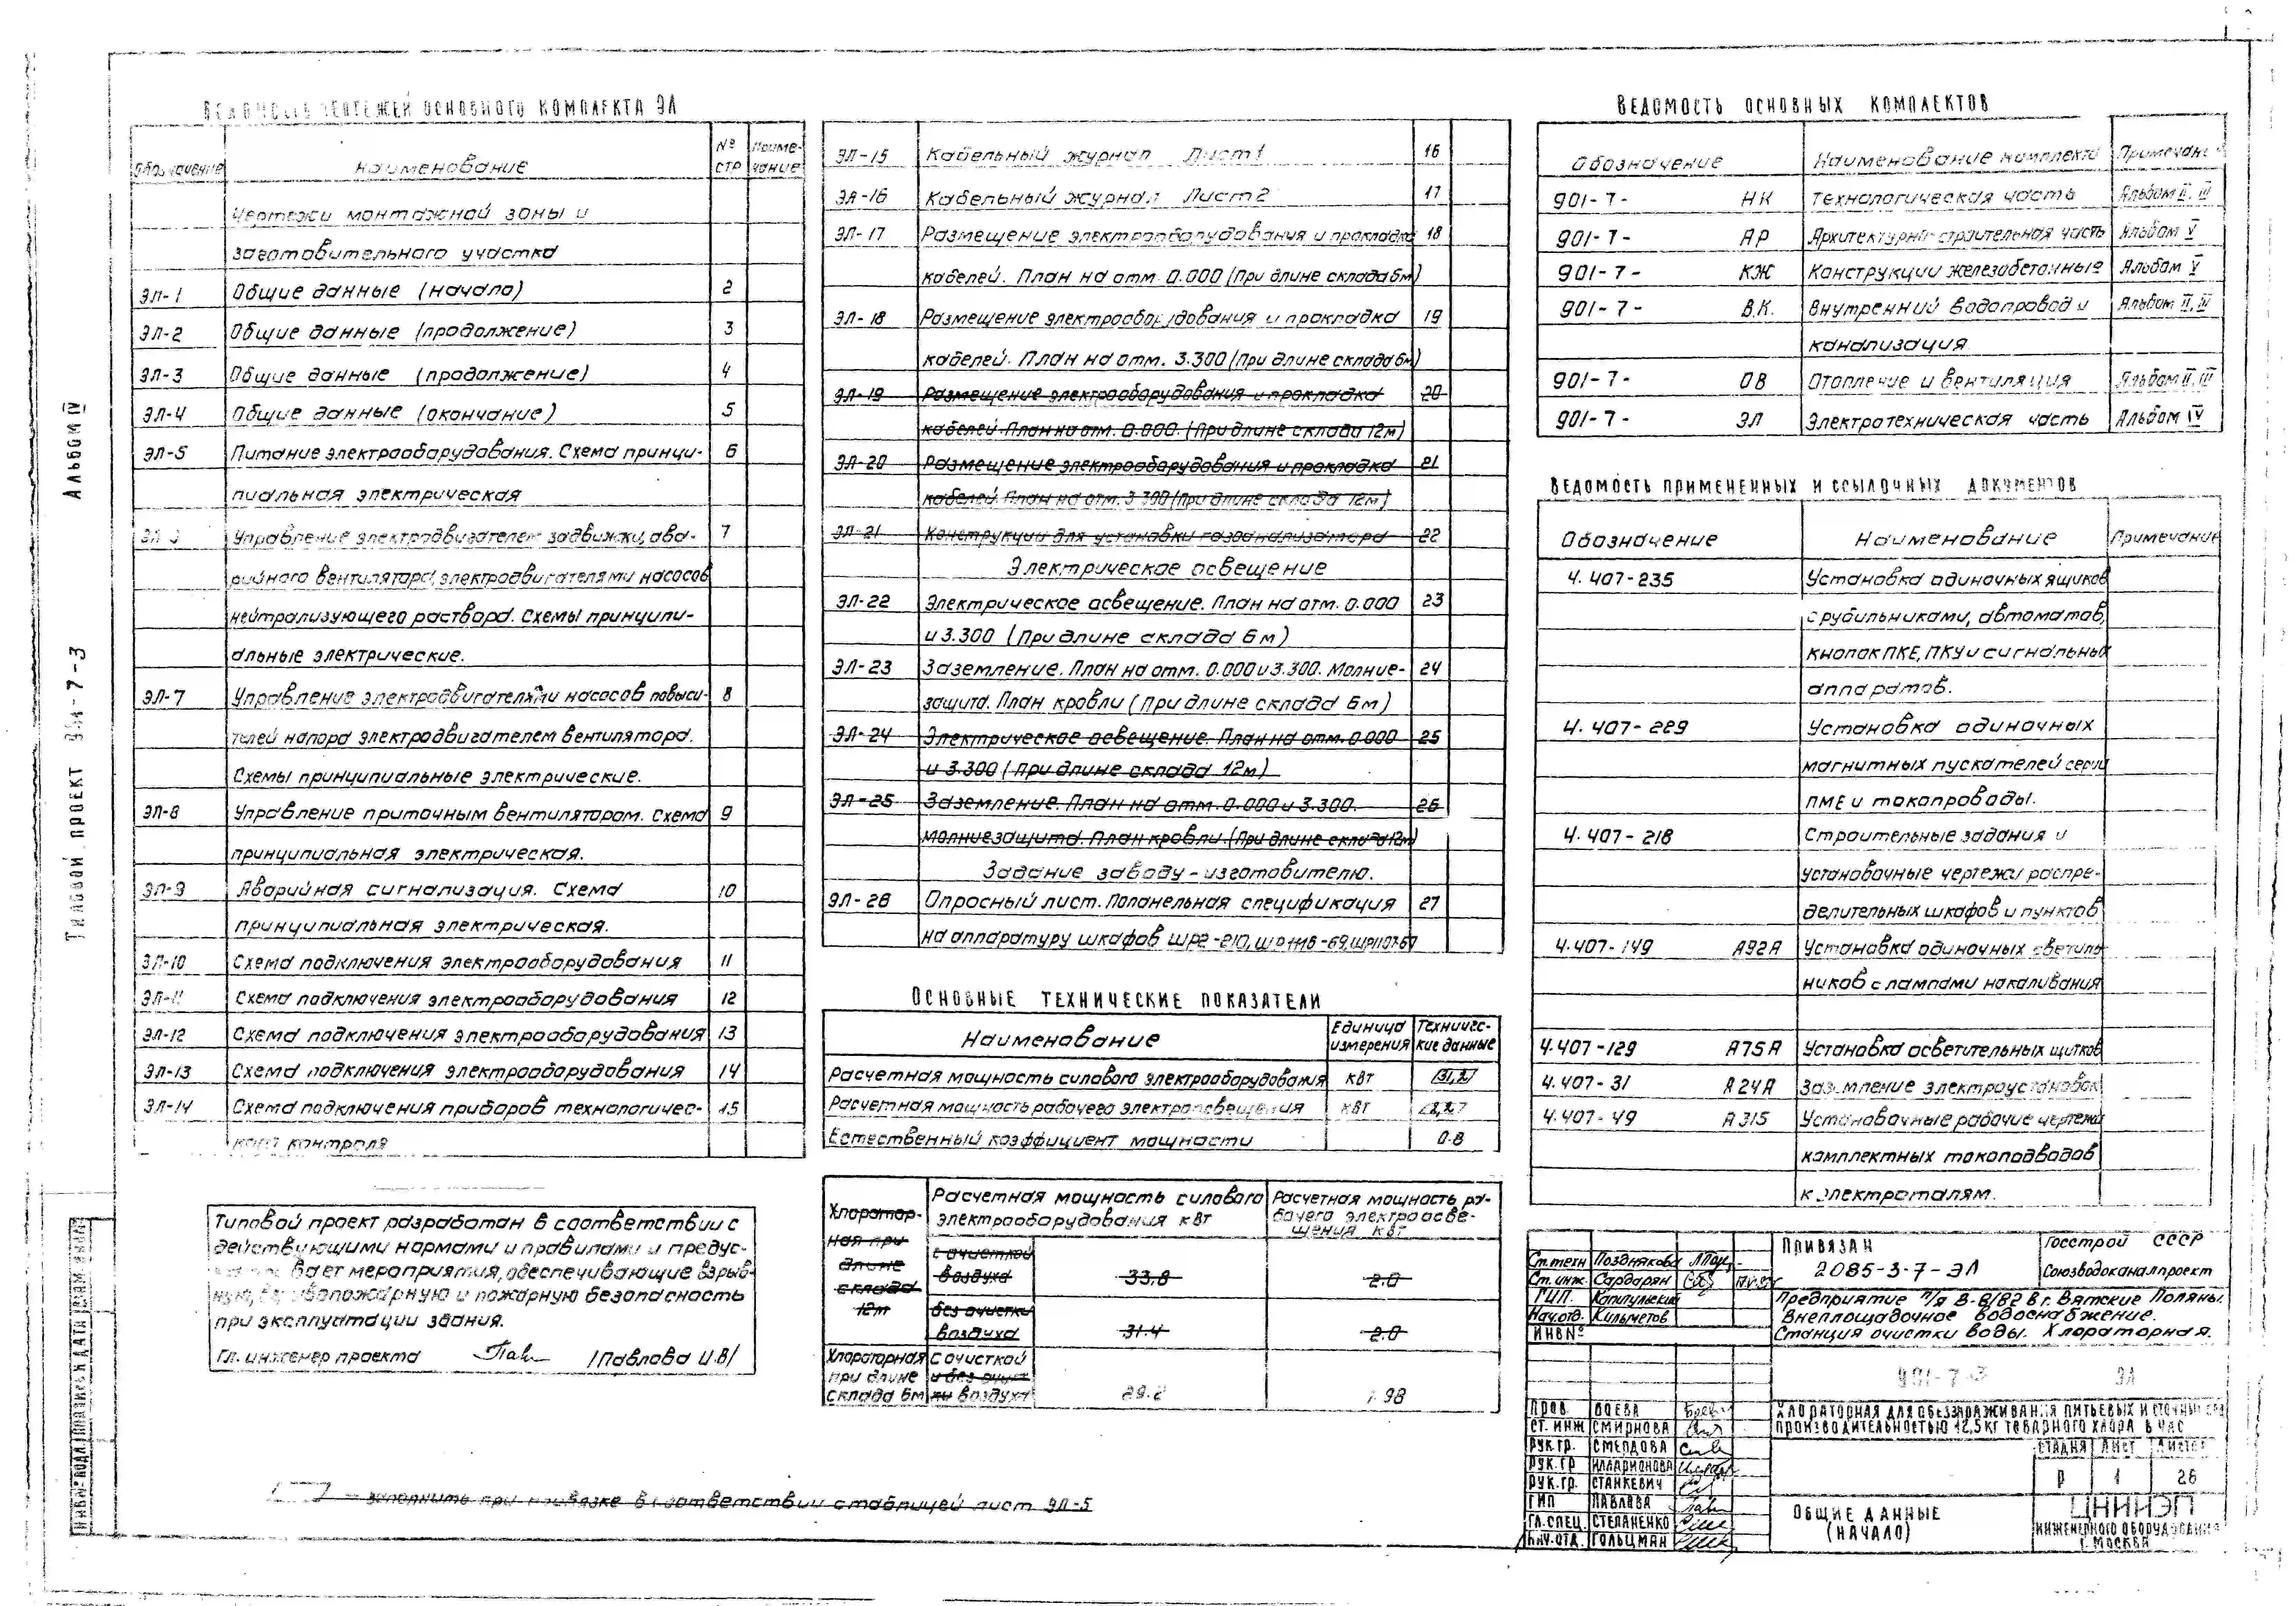 Альбом IV
Типовой проект 901-7-3
Ведомость чертежей основного комплекта ЭЛ
Обозначение Наименование № стр Приме-чание
Чертежи монтажной зоны и
заготовительного участка
ЭЛ-1 Общие данные (начало) 2
ЭЛ-2 Общие данные (продолжение) 3
ЭЛ-3 Общие данные (продолжение) 4
ЭЛ-4 Общие данные (окончание) 5
ЭЛ-5 Питание электрооборудования. Схема принци- 6
пиальная электрическая
Управление электродвигателем задвижки, ава- 7
рийного вентилятора, электродвигателями насосов
нейтрализующего раствора. Схемы принципи-
альные электрические.
ЭЛ-7 Управление электродвигателями насосов повыси- 8
телей напора электродвигателем вентилятора.
Схемы принципиальные электрические.
ЭЛ-8 Управление приточным вентилятором. Схема 9
принципиальная электрическая.
ЭЛ-9 Аварийная сигнализация. Схема 10
принципиальная электрическая.
ЭЛ-10 Схема подключения электрооборудования 11
ЭЛ-11 Схема подключения электрооборудования 12
ЭЛ-12 Схема подключения электрооборудования 13
ЭЛ-13 Схема подключения электрооборудования 14
ЭЛ-14 Схема подключения приборов технологичес- 15
кого контроля
Типовой проект разработан в соответствии с
действующими нормами и правилами и предус-
вает мероприятия, обеспечивающие взрыв-
ную, взрывопожарную и пожарную безопасность
при эксплуатации здания.
Гл. инженер проекта /Павлова И.В/
ЭЛ-15 Кабельный журнал Лист 1 16
ЭЛ-16 Кабельный журнал Лист 2 17
ЭЛ-17 Размещение электрооборудования и прокладка 18
кабелей. План на отм. 0.000 (При длине склада 6м)
ЭЛ-18 Размещение электрооборудования и прокладка 19
кабелей. План на отм. 3.300 (При длине склада 6м)
ЭЛ-19 Размещение электрооборудования и прокладка 20
кабелей. План на отм. 0.000. (При длине склада 12м)
ЭЛ-20 Размещение электрооборудования и прокладка 21
кабелей. План на отм. 3.300 (При длине склада 12м)
ЭЛ-21 Конструкции для установки газоанализатора 22
Электрическое освещение
ЭЛ-22 Электрическое освещение. План на отм. 0.000 23
и 3.300 (При длине склада 6м)
ЭЛ-23 Заземление. План на отм. 0.000 и 3.300. Молние- 24
защита. План кровли (При длине склада 6м)
ЭЛ-24 Электрическое освещение. План на отм. 0.000 25
и 3.300 (При длине склада 12м)
ЭЛ-25 Заземление. План на отм. 0.000 и 3.300. 26
молниезащита. План кровли. (При длине склада 12м)
Задание заводу-изготовителю.
ЭЛ-26 Опросный лист. Попанельная спецификация 27
на аппаратуру шкафов
Основные технические показатели
Наименование Единица измерения Техничес-кие данные
Расчетная мощность силового электрооборудования кВт
Расчетная мощность рабочего электроосвещения кВт
Естественный коэффициент мощности 0.8
Расчетная мощность силового электрооборудования кВт Расчетная мощность ра-бочего электроосве-щения кВт
Хлоратор-ная при длине склада 12м
с очисткой воздуха 33.8 2.0
без очистки воздуха 31.4 2.0
Хлораторная при длине склада 6м с очисткой и без очистки воздуха 29.2 1.98
заполнить при привязке в соответствии с таблицей лист ЭЛ-5
Ведомость основных комплектов
Обозначение Наименование комплекта Примечание
901-7- НК Технологическая часть
901-7- АР Архитектурно-строительная часть Альбом V
901-7- КЖ Конструкции железобетонные Альбом V
901-7- В.К. Внутренний водопровод и
канализация
901-7- ОВ Отопление и вентиляция
901-7- ЭЛ Электротехническая часть Альбом IV
Ведомость примененных и ссылочных документов
Обозначение Наименование Примечание
4.407-235 Установка одиночных ящиков
с рубильниками, автоматов,
кнопок ПКЕ, ПКУ и сигнальных
аппаратов.
4.407-229 Установка одиночных
магнитных пускателей серии
ПМЕ и токопроводы.
4.407-218 Строительные задания и
установочные чертежи распре-
делительных шкафов и пунктов
4.407-149 А92А Установка одиночных светиль-
ников с лампами накаливания
4.407-129 А75А Установка осветительных щитков
4.407-31 А24А Заземление электроустановок
4.407-49 А315 Установочные рабочие чертежи
комплектных токоподводов
к электроталям.
Ст.техн Позднякова
Ст.инж. Сардарян
ГИП.
Нач.отд. Кильметов
ИНВ№
Привязан
2085-3-7-ЭЛ
Госстрой СССР
Союзводоканалпроект
Предприятие п/я В-8182 в г. Вятские Поляны.
Внеплощадочное водоснабжение.
Станция очистки воды. Хлораторная.
901-7-3 ЭЛ
Хлораторная для обеззараживания питьевых и сточных вод
производительностью 12,5кг товарного хлора в час
Пров. Боева
Ст.инж Смирнова
Рук.гр. Смелова
Рук.гр Илларионова
Рук.гр. Станкевич
ГИП Павлова
Гл.спец. Степаненко
Нач.отд. Гольцман
Стадия Лист Листов
Р 1 26
Общие данные
(начало)
ЦНИИЭП
инженерного оборудования
г. Москва